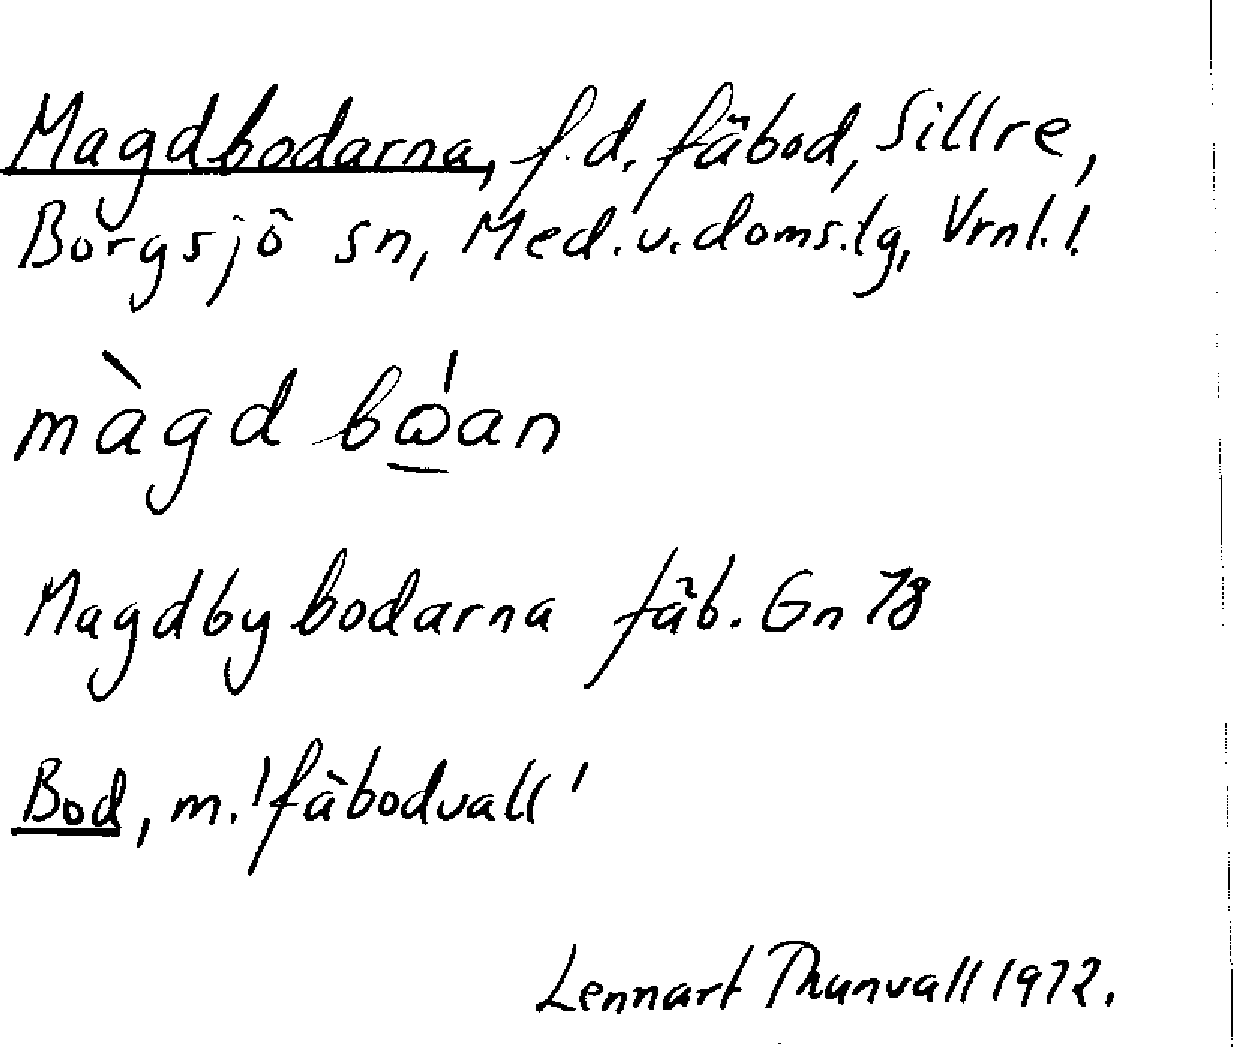 Magdbodarna, f.d. fäbod, Sillre,
Borgsjö sn, Med.v.doms.lg, Vrnl.l.
màgd bώ̲an
Magdbybodarna fäb. Gn 78
Bod, m. 'fäbodvall'
Lennart Thunvall 1972.